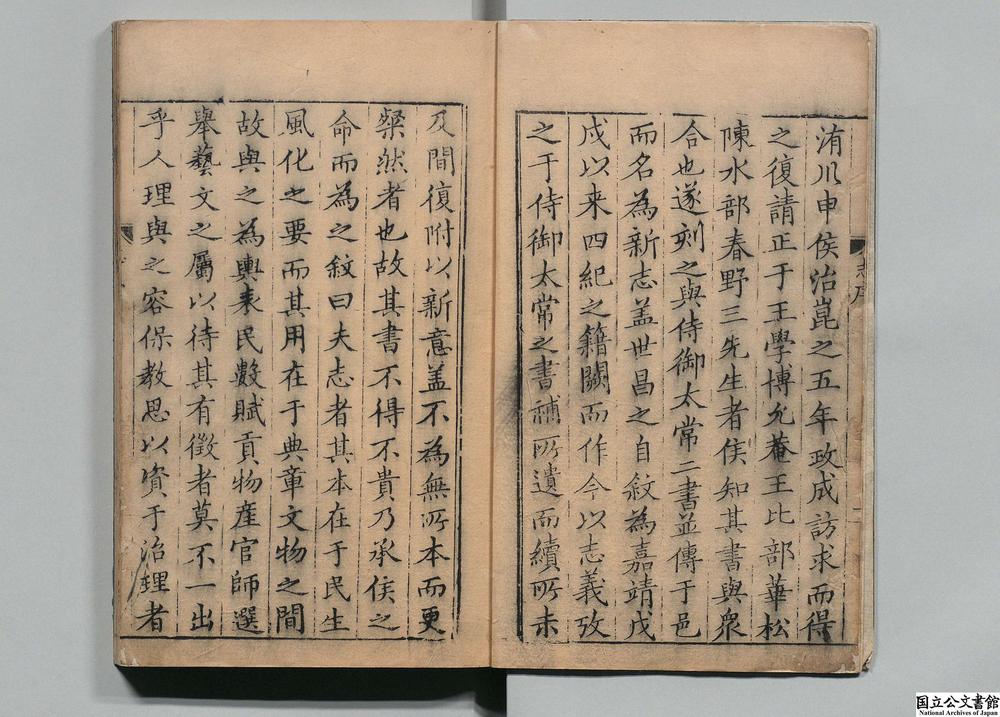 洧川申侯治崑之五年政成訪求而得
之復請正于王學博允菴王比部華松
陳水部春野三先生者侯知其書與衆
合也遂刻之與侍御太常二書並傳于邑
而名為新志盖世昌之自敘為嘉靖戊
戌以来四紀之籍闕而作今以志義攷
之于侍御太常之書補所遺而續所未
及間復附以新意盖不為無所本而更
粲然者也故其書不得不貴乃承侯之
命而為之敘曰夫志者其本在于民生
風化之要而其用在于典章文物之間
故與之為輿表民數賦貢物產官師選
舉藝文之屬以待其有徵者莫不一出
乎人理與之容保教思以資于治理者
国立公文書館
National Archives of Japan